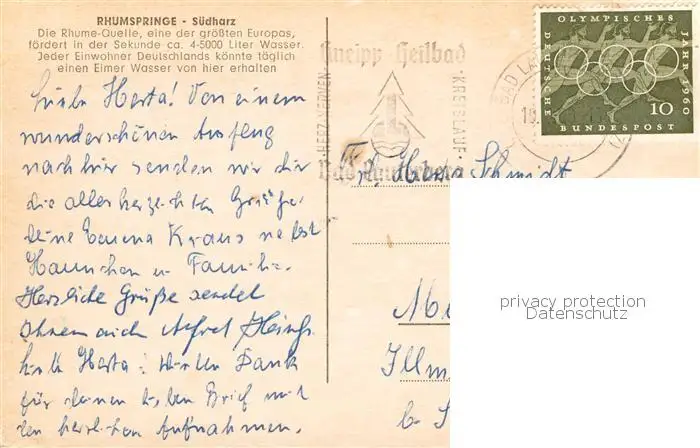 RHUMSPRINGE - Südharz
Die Rhume-Quelle, eine der größten Europas,
fördert in der Sekunde ca. 4-5000 Liter Wasser.
Jeder Einwohner Deutschlands könnte täglich
einen Eimer Wasser von hier erhalten
Liebe Herta! Von einem
wunderschönen Ausflug
nach hier senden wir dir
die aller herzlichsten Grüße
deine Kraus nebst
Hannchen u Familie.
Herzliche Grüße sendet
Ihnen auch Alfred
Liebe Herta! Vielen Dank
für deinen lieben Brief mit
den herrlichen Aufnahmen.
Kneipp-Heilbad
HERZ·NERVEN
KREISLAUF·
Bad Lauterberg
BAD LA
OLYMPISCHES
JAHR 1960
DEUTSCHE
BUNDESPOST
10
Fr. Herta Schmidt
privacy protection
Datenschutz